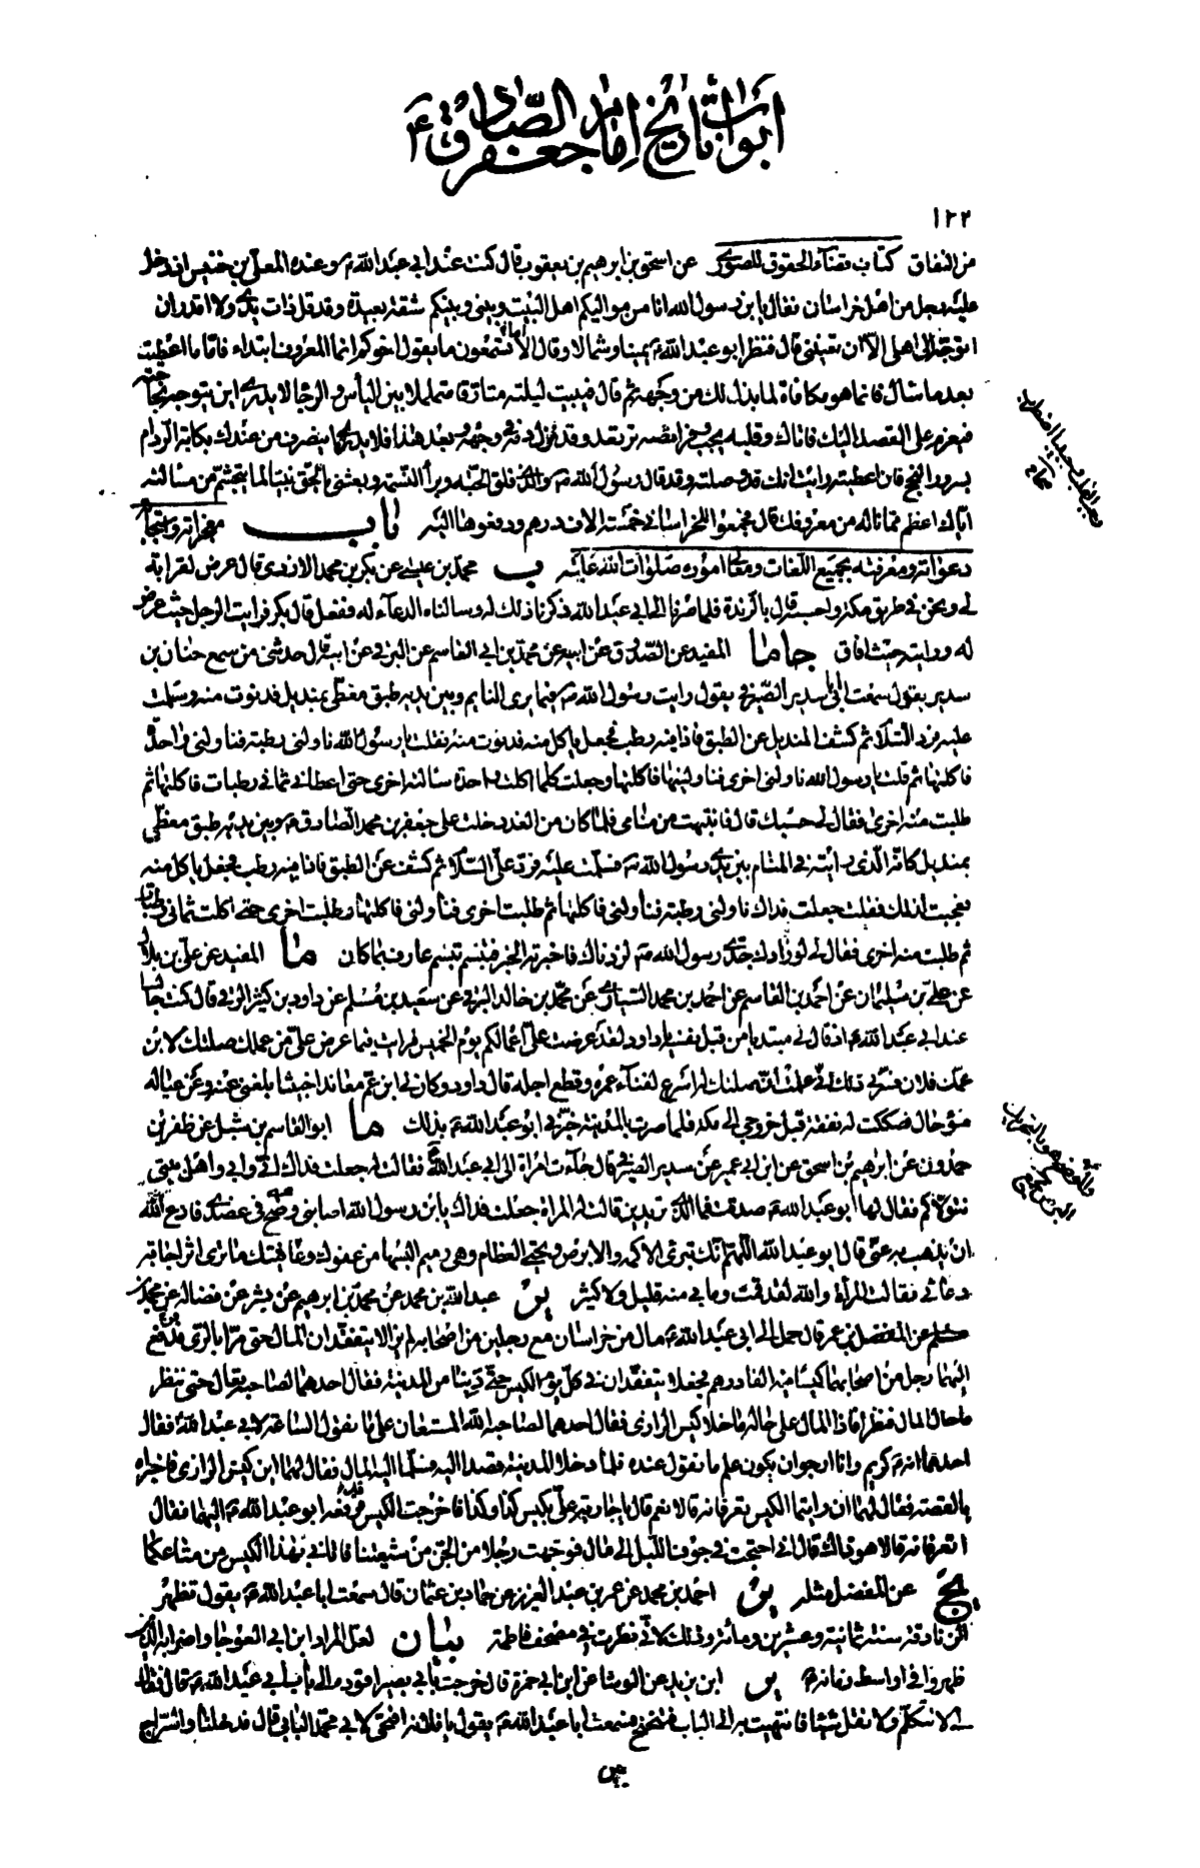 أبواب تاريخ إمام جعفر الصادق ع
١٢٢
من النفاق كتاب قضاء الحقوق للصوري عن اسحق بن ابرهيم بن يعقوب قال كنت عند ابي عبد الله ع وعنده المعلى بن خنيس اذ دخل
عليه رجل من اهل خراسان فقال يا بن رسول الله انا من مواليكم اهل البيت وبيني وبينكم شقة بعيدة وقد قل ذات يدي ولا اقدر ان
اتوجه الى اهلي الا ان تعينني قال فنظر ابو عبد الله ع يمينا وشمالا وقال الا تسمعون ما يقول اخوكم انما المعروف ابتداء فاما ما اعطيت
بعد ما سأل فانما هو مكافاة لما بذل لك من وجهه ثم قال فيبيت ليلته متارقا متململا بين اليأس والرجا لا يدري اين يتوجه بحاجته
فيعزم على القصد اليك فاتاك وقلبه يجب وفرائصه ترتعد وقد نزل دمه في وجهه وبعد هذا فلا يدري اينصرف من عندك بكابة الرد ام
بسرور النجح فان اعطيته رايت انك قد وصلته وقد قال رسول الله ص والذي فلق الحبة وبرأ النسمة وبعثني بالحق نبيا لما يتجشم من مسالته
اياك اعظم مما ناله من معروفك قال فجمعوا للخراساني خمسة الاف درهم ودفعوها اليه باب معجزاته واستجابة
دعواته ومعرفته بجميع اللغات ومعالي اموره صلوات الله عليه ب محمد بن عيسى عن بكر بن محمد الازدي قال عرض لقرابة
لي ونحن في طريق مكة واحسبه قال بالربذة فلما صرنا الى ابي عبد الله ذكرنا ذلك له وسالناه الدعاء له ففعل قال بكر فرايت الرجل حيث عرض
له ورايته حيث افاق جا ما المفيد عن الصدوق عن ابيه عن محمد بن ابي القاسم عن البرقي عن ابيه قال حدثني من سمع حنان بن
سدير يقول سمعت ابي سدير الصيرفي يقول رايت رسول الله ص فيما يرى النايم وبين يديه طبق مغطى بمنديل فدنوت منه وسلمت
عليه فرد السلام ثم كشف المنديل عن الطبق فاذا فيه رطب فجعل ياكل منه فدنوت منه فقلت يا رسول الله ناولني رطبة فناولني واحدة
فاكلتها ثم قلت يا رسول الله ناولني اخرى فناولنيها فاكلتها وجعلت كلما اكلت واحدة سالته اخرى حتى اعطاني ثماني رطبات فاكلتها ثم
طلبت منه اخرى فقال لي حسبك قال فانتبهت من منامي فلما كان من الغد دخلت على جعفر بن محمد الصادق ع وبين يديه طبق مغطى
بمنديل كانه الذي رايته في المنام بين يدي رسول الله ص فسلمت عليه فرد علي السلام ثم كشف عن الطبق فاذا فيه رطب فجعل ياكل منه
فعجبت لذلك فقلت جعلت فداك ناولني رطبة فناولني فاكلتها ثم طلبت اخرى فناولني فاكلتها وطلبت اخرى حتى اكلت ثماني رطبات
ثم طلبت منه اخرى فقال لي لو زادك جدي رسول الله ص لزدناك فاخبرته الخبر فتبسم تبسم عارف بما كان ما المفيد عن علي بن بلال
عن علي بن سليمان عن احمد بن القاسم عن احمد بن محمد السياري عن محمد بن خالد البرقي عن سعيد بن مسلم عن داود بن كثير الرقي قال كنت جالسا
عند ابي عبد الله ع اذ قال لي مبتديا من قبل نفسه يا داود لقد عرضت علي اعمالكم يوم الخميس فرايت فيما عرض علي من عملك صلتك لابن
عمك فلان فسرني ذلك اني علمت ان صلتك له اسرع لفناء عمره وقطع اجله قال داود وكان لي ابن عم معاندا خبيثا بلغني عنه وعن عياله
سوء حال فصككت له نفقة قبل خروجي الى مكة فلما صرت بالمدينة خبرني ابو عبد الله ع بذلك ما ابو القاسم بن شبل عن ظفر بن
حمدون عن ابرهيم بن اسحق عن ابن ابي عمير عن سدير الصيرفي قال جاءت امراة الى ابي عبد الله ع فقالت له جعلت فداك ابي وامي واهل بيتي
نتولاكم فقال لها ابو عبد الله ع صدقت فما الذي تريدين قالت له المراة جعلت فداك يا بن رسول الله اصابني وضح في عضدي فادع الله
ان يذهب به عني قال ابو عبد الله اللهم انك تبرئ الاكمه والابرص وتحيي العظام وهي رميم البسها من عفوك وعافيتك ما ترى اثر اجابة
دعائي فقالت المراة والله لقد قمت وما بي منه قليل ولا كثير ير عبد الله بن محمد عن محمد بن ابرهيم عن بشر عن فضالة عن محمد بن
مسلم عن المفضل بن عمر قال حمل الى ابي عبد الله ع مال من خراسان مع رجلين من اصحابه لم يزالا يتفقدان المال حتى مرا بالري فدفع
اليهما رجل من اصحابهما كيسا فيه الفا درهم فجعلا يتفقدان في كل يوم الكيس حتى دنيا من المدينة فقال احدهما لصاحبه تعال حتى ننظر
ما حال المال فنظرا فاذا المال على حاله ما خلا كيس الرازي فقال احدهما لصاحبه الله المستعان على ما نقول الساعة لابي عبد الله ع فقال
احدهما انه ع كريم وانا ارجو ان يكون علم ما نقول عنده فلما دخلا المدينة قصدا اليه فسلما اليه المال فقال لهما اين كيس الرازي فاخبراه
بالقصة فقال لهما ان رايتما الكيس تعرفانه قالا نعم قال يا جارية علي بكيس كذا وكذا فاخرجت الكيس فرفعه ابو عبد الله ع اليهما فقال
اتعرفانه قالا هو ذاك قال اني احتجت في جوف الليل الى مال فوجهت رجلا من الجن من شيعتنا فاتاني بهذا الكيس من متاعكما
يج عن المفضل مثله ير احمد بن محمد عن عمر بن عبد العزيز عن حماد بن عثمان قال سمعت ابا عبد الله ع يقول تظهر
الزنادقة سنة ثمانية وعشرين ومائة وذلك لاني نظرت في مصحف فاطمة بيان لعل المراد ابن ابي العوجا واضرابه الذين
ظهروا في اواسط زمانه ع ير ابن يزيد عن الوشا عن ابن ابي حمزة قال خرجت بابي بصير اقوده الى باب ابي عبد الله ع قال فقال
لي لا تتكلم ولا تقل شيئا فانتهيت به الى الباب فتنحنح فسمعت ابا عبد الله ع يقول يا فلانة افتحي لابي محمد الباب قال فدخلنا والسراج
بين